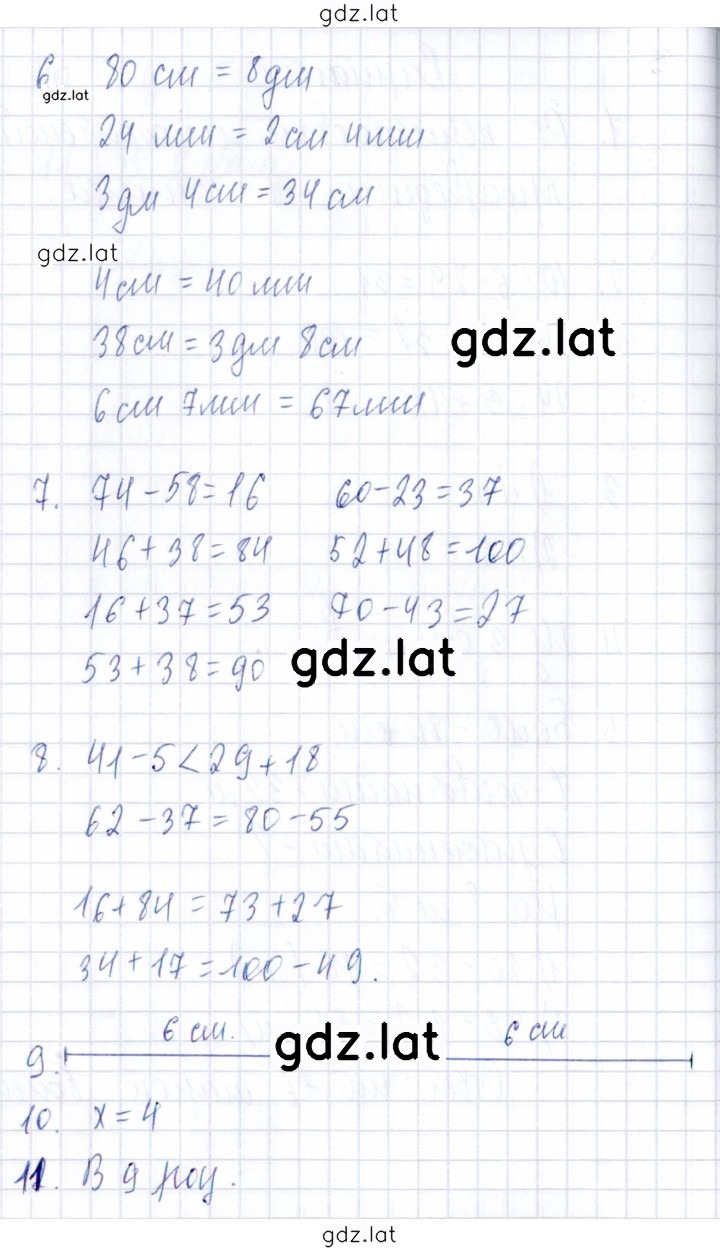 gdz.lat
6 80 см = 8дм
gdz.lat
24 мм = 2см 4мм
3дм 4см = 34см
gdz.lat
4см = 40мм
38см = 3дм 8см
gdz.lat
6см 7мм = 67мм
7. 74-58=16 60-23=37
46+38=84 52+48=100
16+37=53 70-43=27
53+38=90
gdz.lat
8. 41-5<29+18
62-37=80-55
16+84=73+27
34+17=100-49.
6 см. 6 см
gdz.lat
9.
10. x=4
11. В 9
gdz.lat